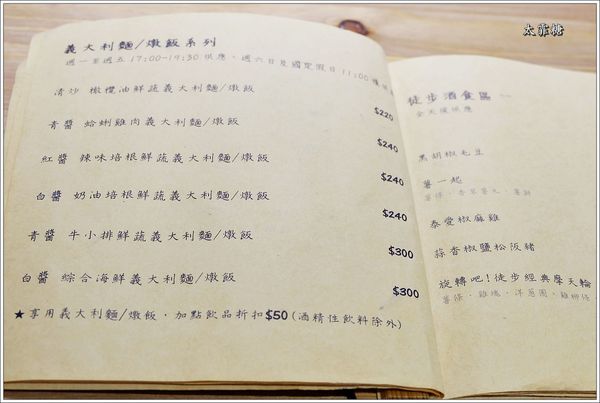 太菲糖
義大利麵/燉飯系列
週一至週五 17:00-19:30供應、週六日及國定假日 11:00
清炒 橄欖油鮮蔬義大利麵/燉飯
$220
青醬 蛤蜊雞肉義大利麵/燉飯
$240
紅醬 辣味培根鮮蔬義大利麵/燉飯
$240
白醬 奶油培根鮮蔬義大利麵/燉飯
$240
青醬 牛小排鮮蔬義大利麵/燉飯
$300
白醬 綜合海鮮義大利麵/燉飯
$300
★享用義大利麵/燉飯，加點飲品折扣$50(酒精性飲料除外)
徒步酒食區
全天候供應
黑胡椒毛豆
薯一起
泰愛椒麻雞
蒜香椒鹽松阪豬
旋轉吧!徒步經典摩天輪
薯條、雞塊、洋蔥圈、雞柳條